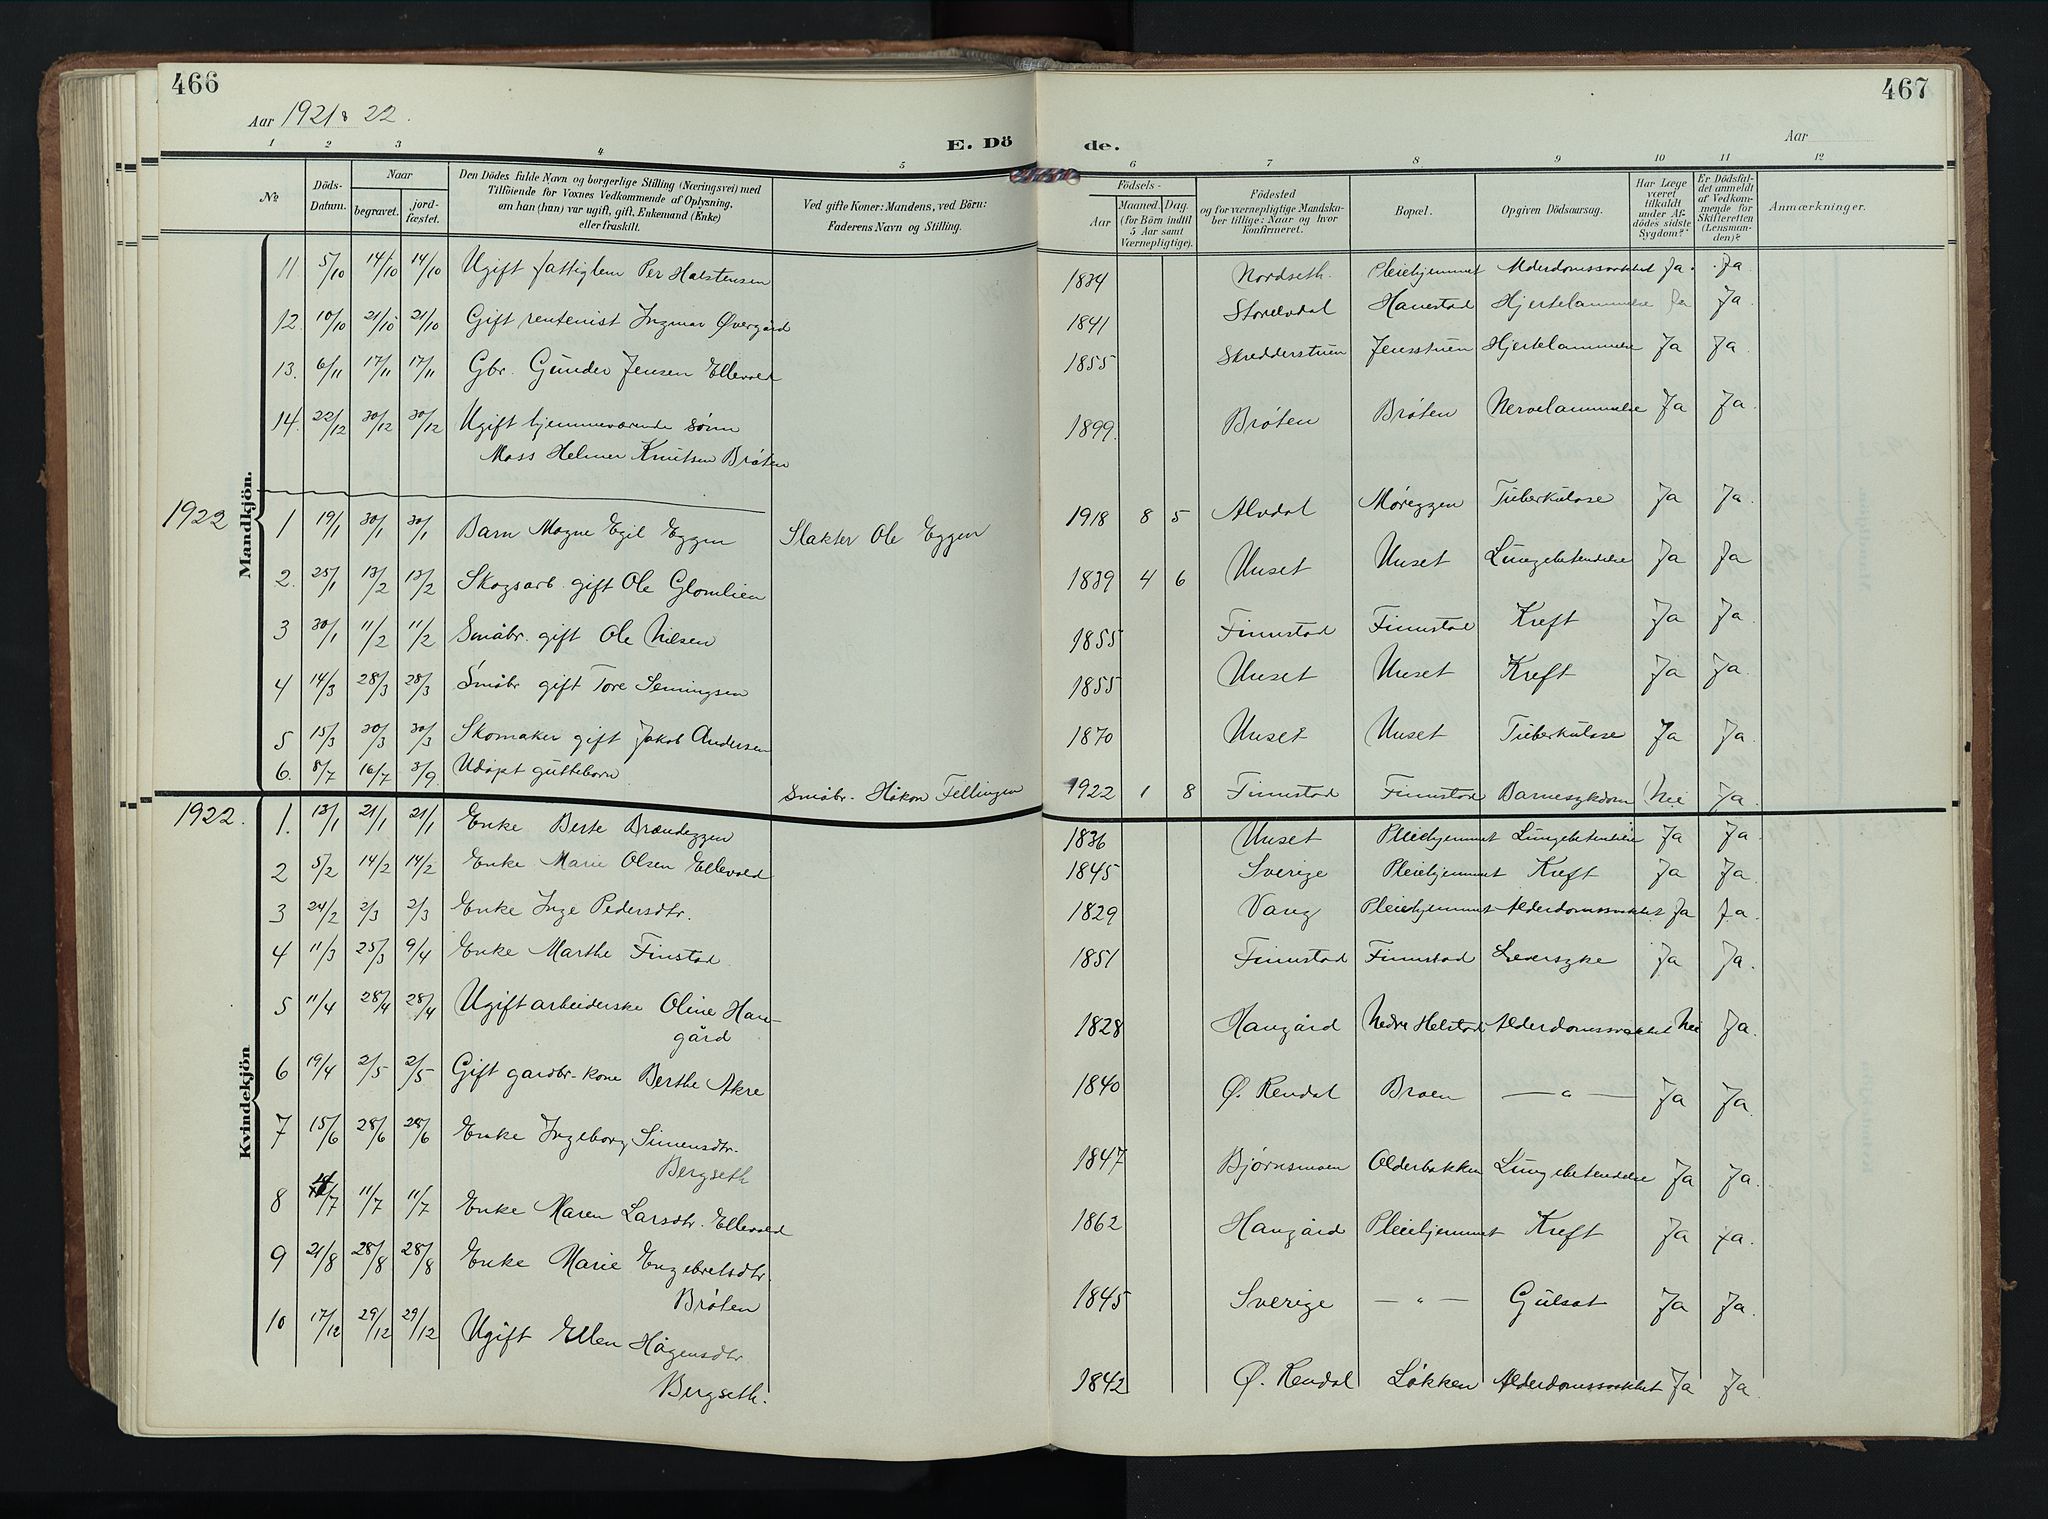 466
467
Aar 1921 & 22.
Aar
E. Dö de.
1 2 3 4 5 6 7 8 9 10 11 12
No.
Döds-Datum.
Naar
begravet.
jord-fæstet.
Den Dödes fulde Navn og borgerlige Stilling (Næringsvei) med
Tilföiende for Voxnes Vedkommende af Oplysning,
om han (hun) var ugift, gift, Enkemand (Enke)
eller fraskilt.
Ved gifte Koner: Mandens, ved Börn:
Faderens Navn og Stilling.
Födsels-
Aar
Maaned. Dag.
(for Börn indtil
5 Aar samt
Værnepligtige).
Födested
og for værnepligtige Mandska-
ber tillige: Naar og hvor
konfirmeret.
Bopæl.
Opgiven Dödsaarsag.
Har Læge
været
tilkaldt
under Af-
dödes sidste
Sygdom?
Er Dödsfal-
det anmeldt
af Vedkom-
mende for
Skifteretten
(Lensman-
den)?
Anmærkninger.
Mandkjön.
11 5/10 14/10 14/10 Ugift fattiglem Per Halstensen 1834 Nordseth. Pleiehjemmet Alderdomssvakhet Ja. Ja.
12. 10/10 21/10 21/10 Gift rentenist Ingmar Øvergård 1841 Storelvdal Hanestad Hjertelammelse Ja Ja.
13. 6/11 17/11 17/11 Gbr. Gunder Jensen Ellevold 1855 Skredderstuen Jensstuen Hjertelammelse Ja Ja.
14. 22/12 30/12 30/12 Ugift hjemmeværende sønn 1899. Brøten Brøten Nervelammelse Ja Ja.
Mass Helmer Knutsen Brøten
1922
1 19/1 30/1 30/1 Barn Magne Egil Eggen Slakter Ole Eggen 1918 8 5 Alvdal Møreggen Tuberkulose Ja Ja.
2. 25/1 13/2 13/2 Skogsarb. gift Ole Glomlien 1839 4 6 Unset Unset Lungebetendelse Ja Ja
3 30/1 11/2 11/2 Småbr. gift Ole Nilsen 1855 Finnstad Finnstad Kreft Ja Ja.
4 14/3 28/3 28/3 Småbr gift Tore Semingsen 1855 Unset Unset Kreft Ja Ja.
5 15/3 30/3 30/3 Skomaker gift Jakob Andersen 1870 Unset Unset Tuberkulose Ja Ja.
6. 8/7 16/7 3/9 Udøpt guttebarn Småbr. Håkon Fellingen 1922 1 8 Finnstad Finnstad Barnesykdom Nei Ja.
1922.
Kvindekjön
1. 13/1 21/1 21/1 Enke Berte Brændeggen 1836 Unset Pleiehjemmet Lungebetendelse Ja Ja.
2 5/2 14/2 14/2 Enke Marie Olsen Ellevold 1845 Sverige Pleiehjemmet Kreft Ja Ja.
3 24/2 2/3 2/3 Enke Inge Pedersdtr. 1829 Vang Pleiehjemmet Alderdomssvakhet Ja Ja.
4 11/3 25/3 9/4 Enke Marthe Finstad 1851 Finnstad Finnstad Leversyke Ja Ja.
5 11/4 28/4 28/4 Ugift arbeiderske Oline Han- 1828 Hangård Nedre Helstad Alderdomssvakhet Nei Ja.
gård
6 19/4 2/5 2/5 Gift gardbr. kone Berthe Akre 1840 Ø. Rendal Broen — " — Ja Ja.
7 15/6 28/6 28/6 Enke Ingeborg Simensdtr. 1847 Bjørnsmoen Olderbakken Lungebetendelse Ja Ja.
Bergseth
8 /7 11/7 11/7 Enke Maren Larsdtr. Ellevold 1862 Hangård Pleiehjemmet Kreft Ja Ja.
9 21/8 28/8 28/8 Enke Marie Engebretsdtr. 1845 Sverige — " — Gulsot Ja Ja.
Brøten
10 17/12 29/12 29/12 Ugift Ellen Hågensdtr 1842 Ø. Rendal Løkken Alderdomssvakhet Ja Ja.
Bergseth.